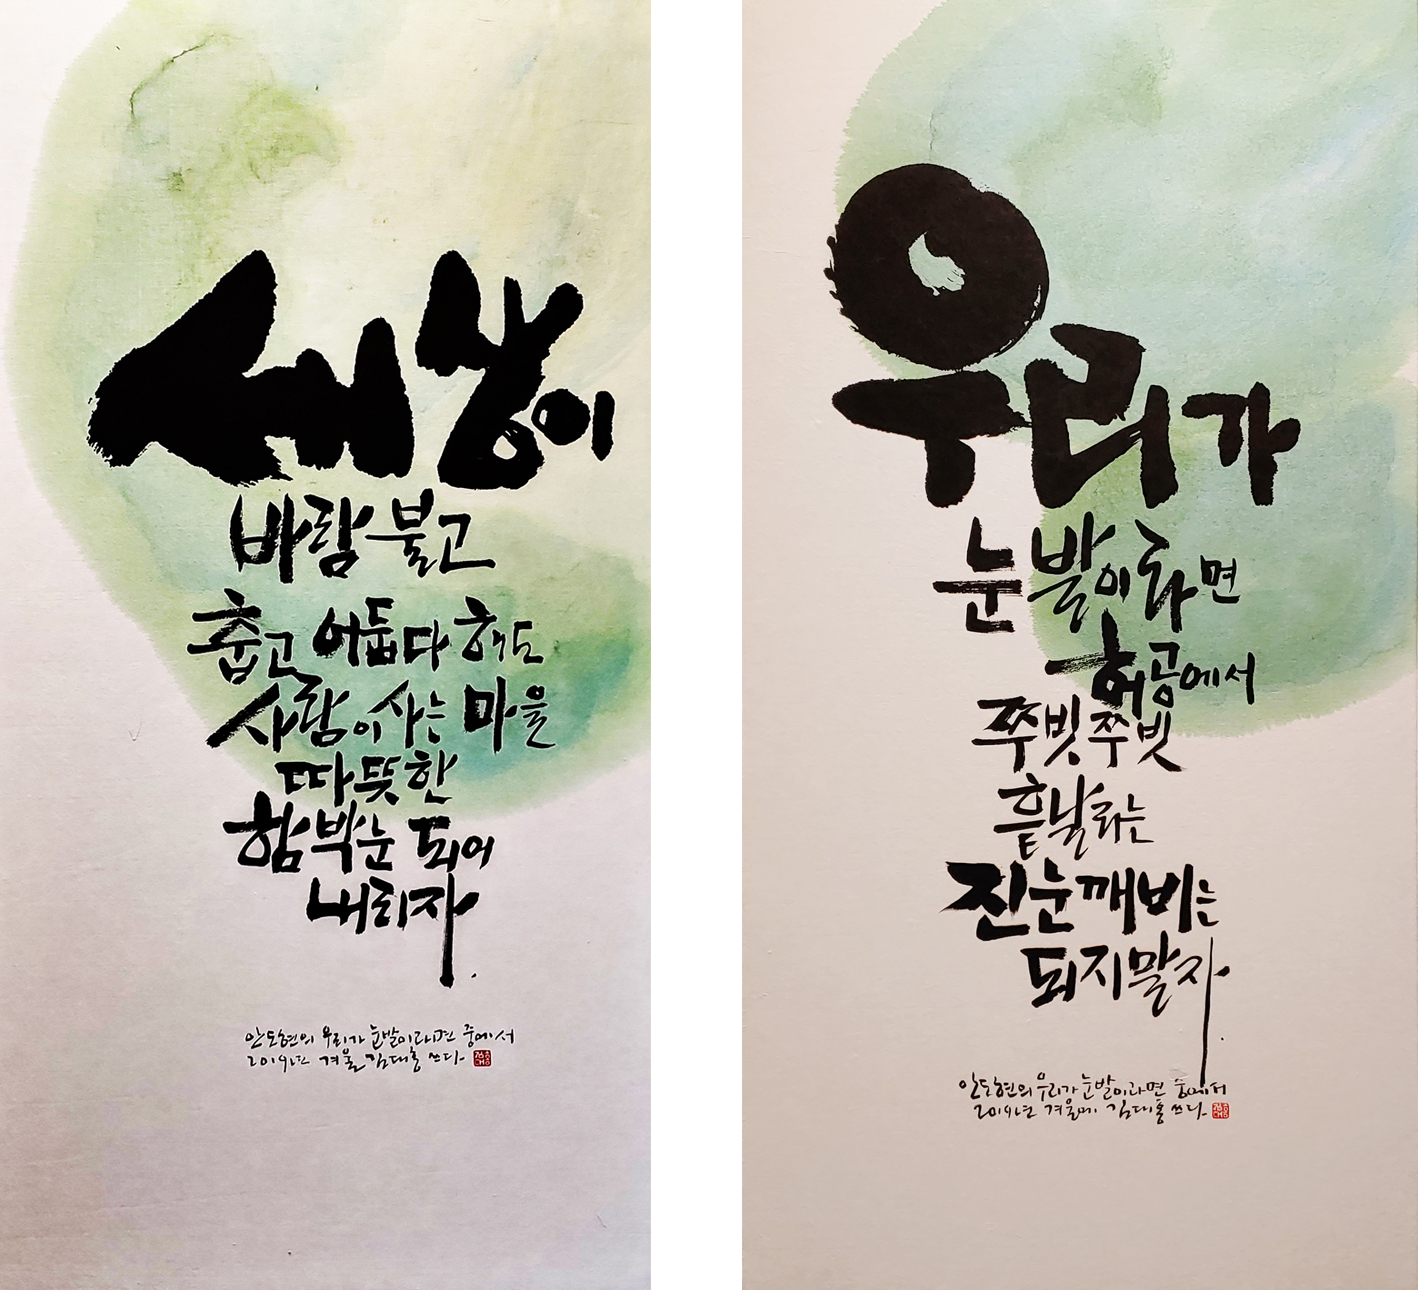 세상이
바람 불고
춥고 어둡다 해도
사람이 사는 마을
따뜻한
함박눈 되어
내리자.
안도현의 우리가 눈발이라면 중에서
2019년 겨울 김대홍 쓰다.
우리가
눈발이라면
허공에서
쭈빗쭈빗
흩날리는
진눈깨비는
되지말자.
안도현의 우리가 눈발이라면 중에서
2019년 겨울에 김대홍 쓰다.